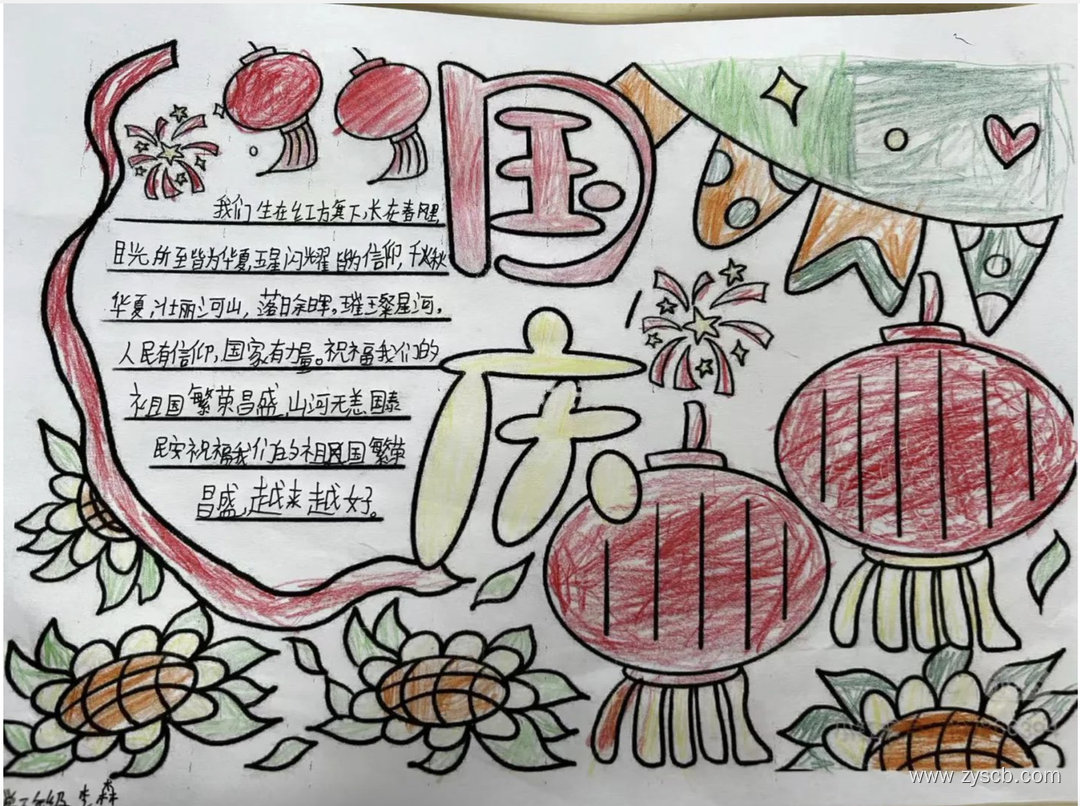 国庆
我们生在红方旗下,长在春风里,
目光所至皆为华夏,五星闪耀皆为信仰,千秋
华夏,壮丽河山,落日余晖。璀璨星河。
人民有信仰,国家有力量。祝福我们的
祖国繁荣昌盛,山河无恙国泰
民安祝福我们的祖国繁荣
昌盛,越来越好。
www.zyscb.com